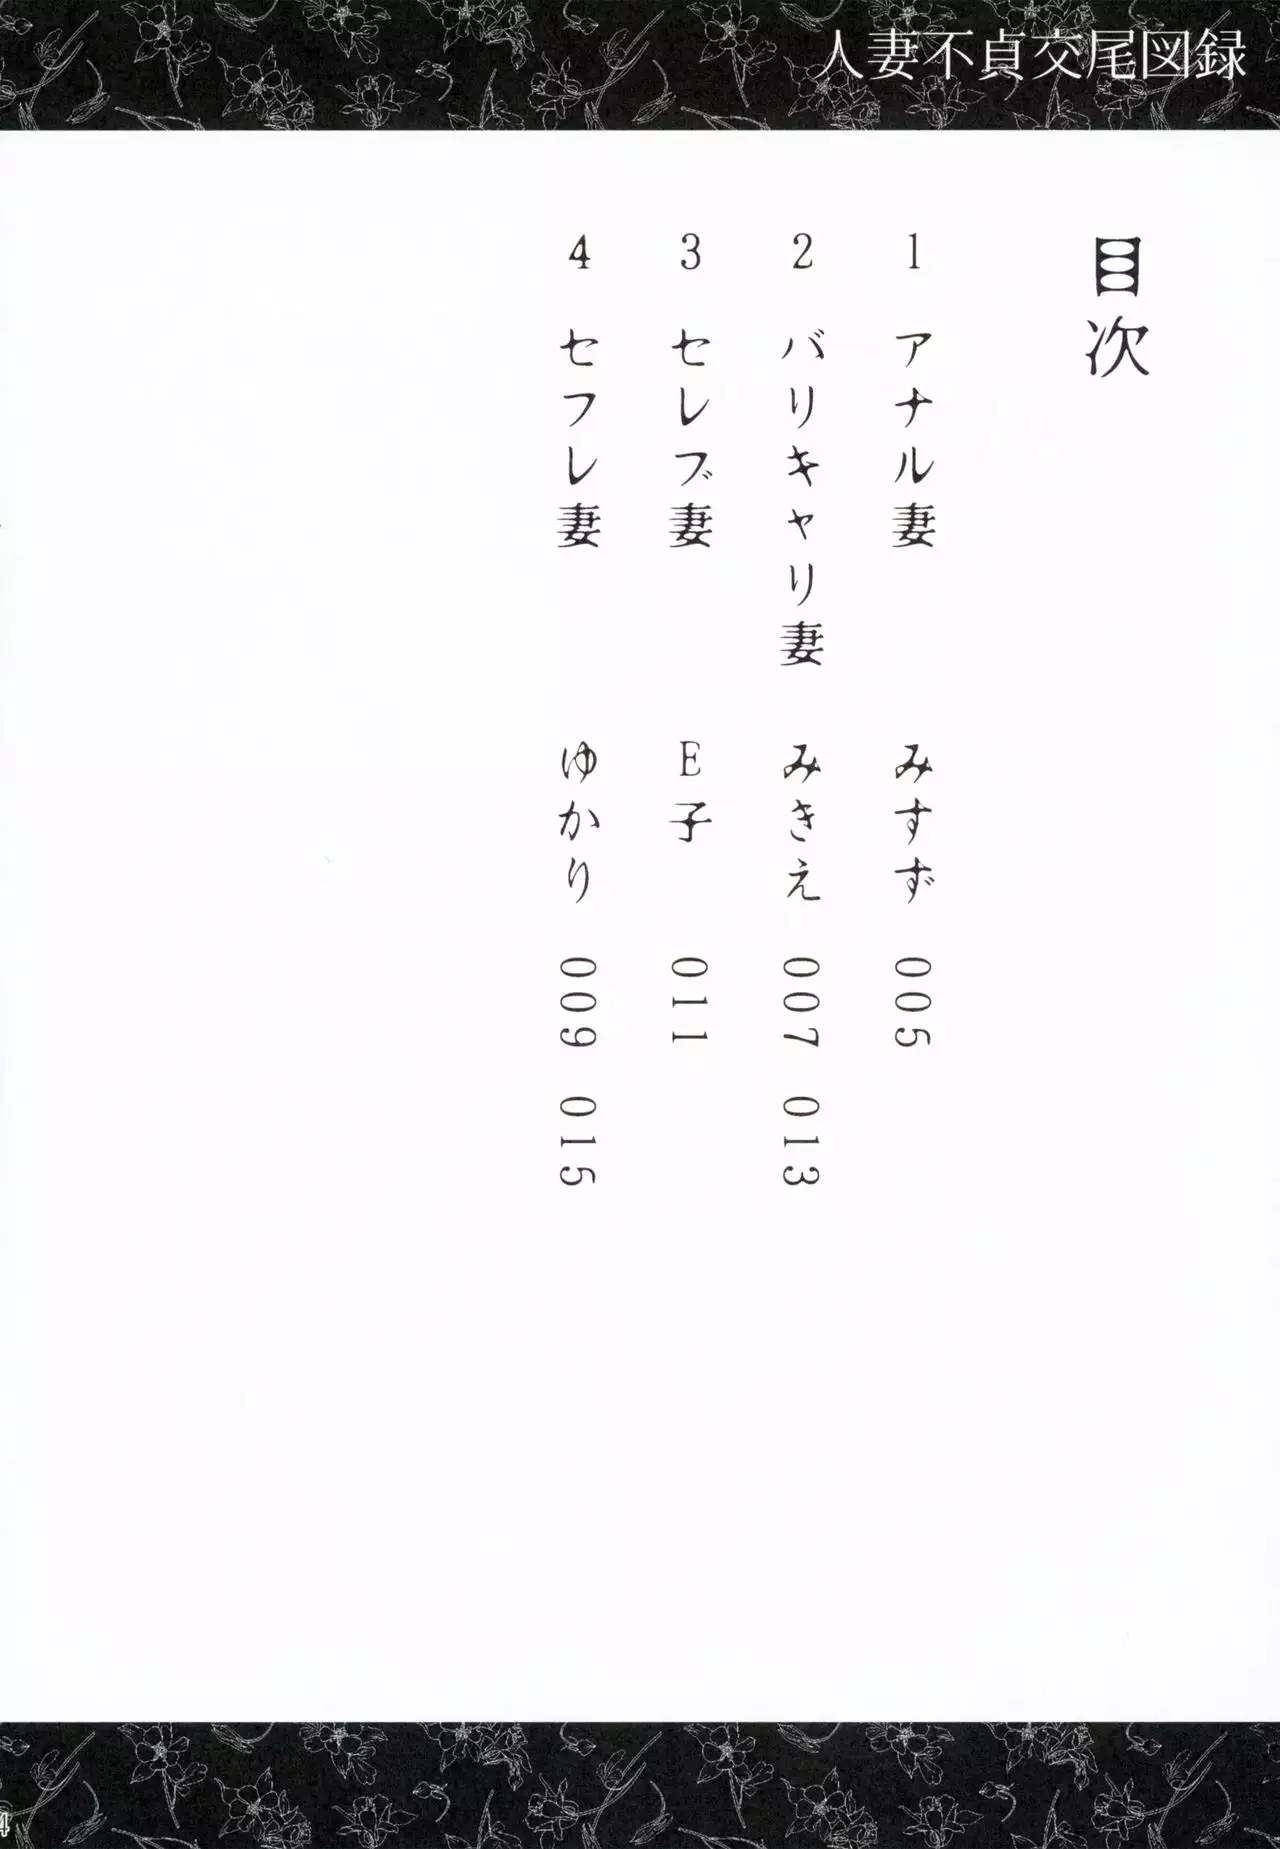 人妻不貞交尾図録
目次
1 アナル妻 みすず 005
2 バリキャリ妻 みきえ 007 013
3 セレブ妻 E子 011
4 セフレ妻 ゆかり 009 015
4